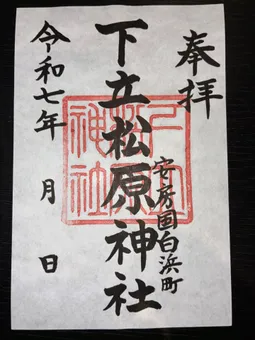 奉拝
安房国白浜町
下立松原神社
令和七年 月 日